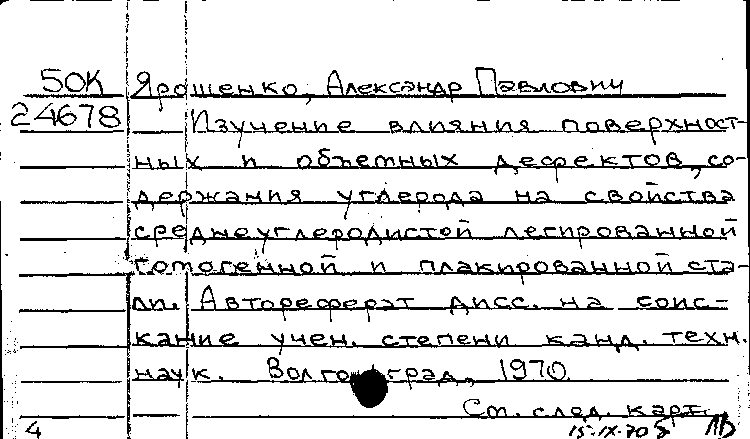 50К Ярошенко, Александр Павлович
24678 Изучение влияния поверхност-
ных и объемных дефектов, со-
держания углерода на свойства
среднеуглеродистой легированной
гомогенной и плакированной ста-
ли. Автореферат дисс. на соис-
кание учен. степени канд. техн.
наук. Волгоград, 1970.
См. след. карт.
4 15-IX-70